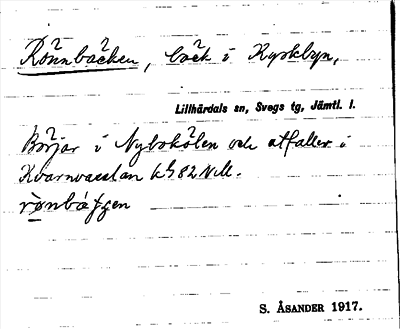 Rönnbäcken, bäck i Kyrkbyn,
Lillhärdals sn, Svegs tg, Jämtl. l.
Börjar i Nybokölen och utfaller i
Kvarnvasslan
S. ÅSANDER 1917.